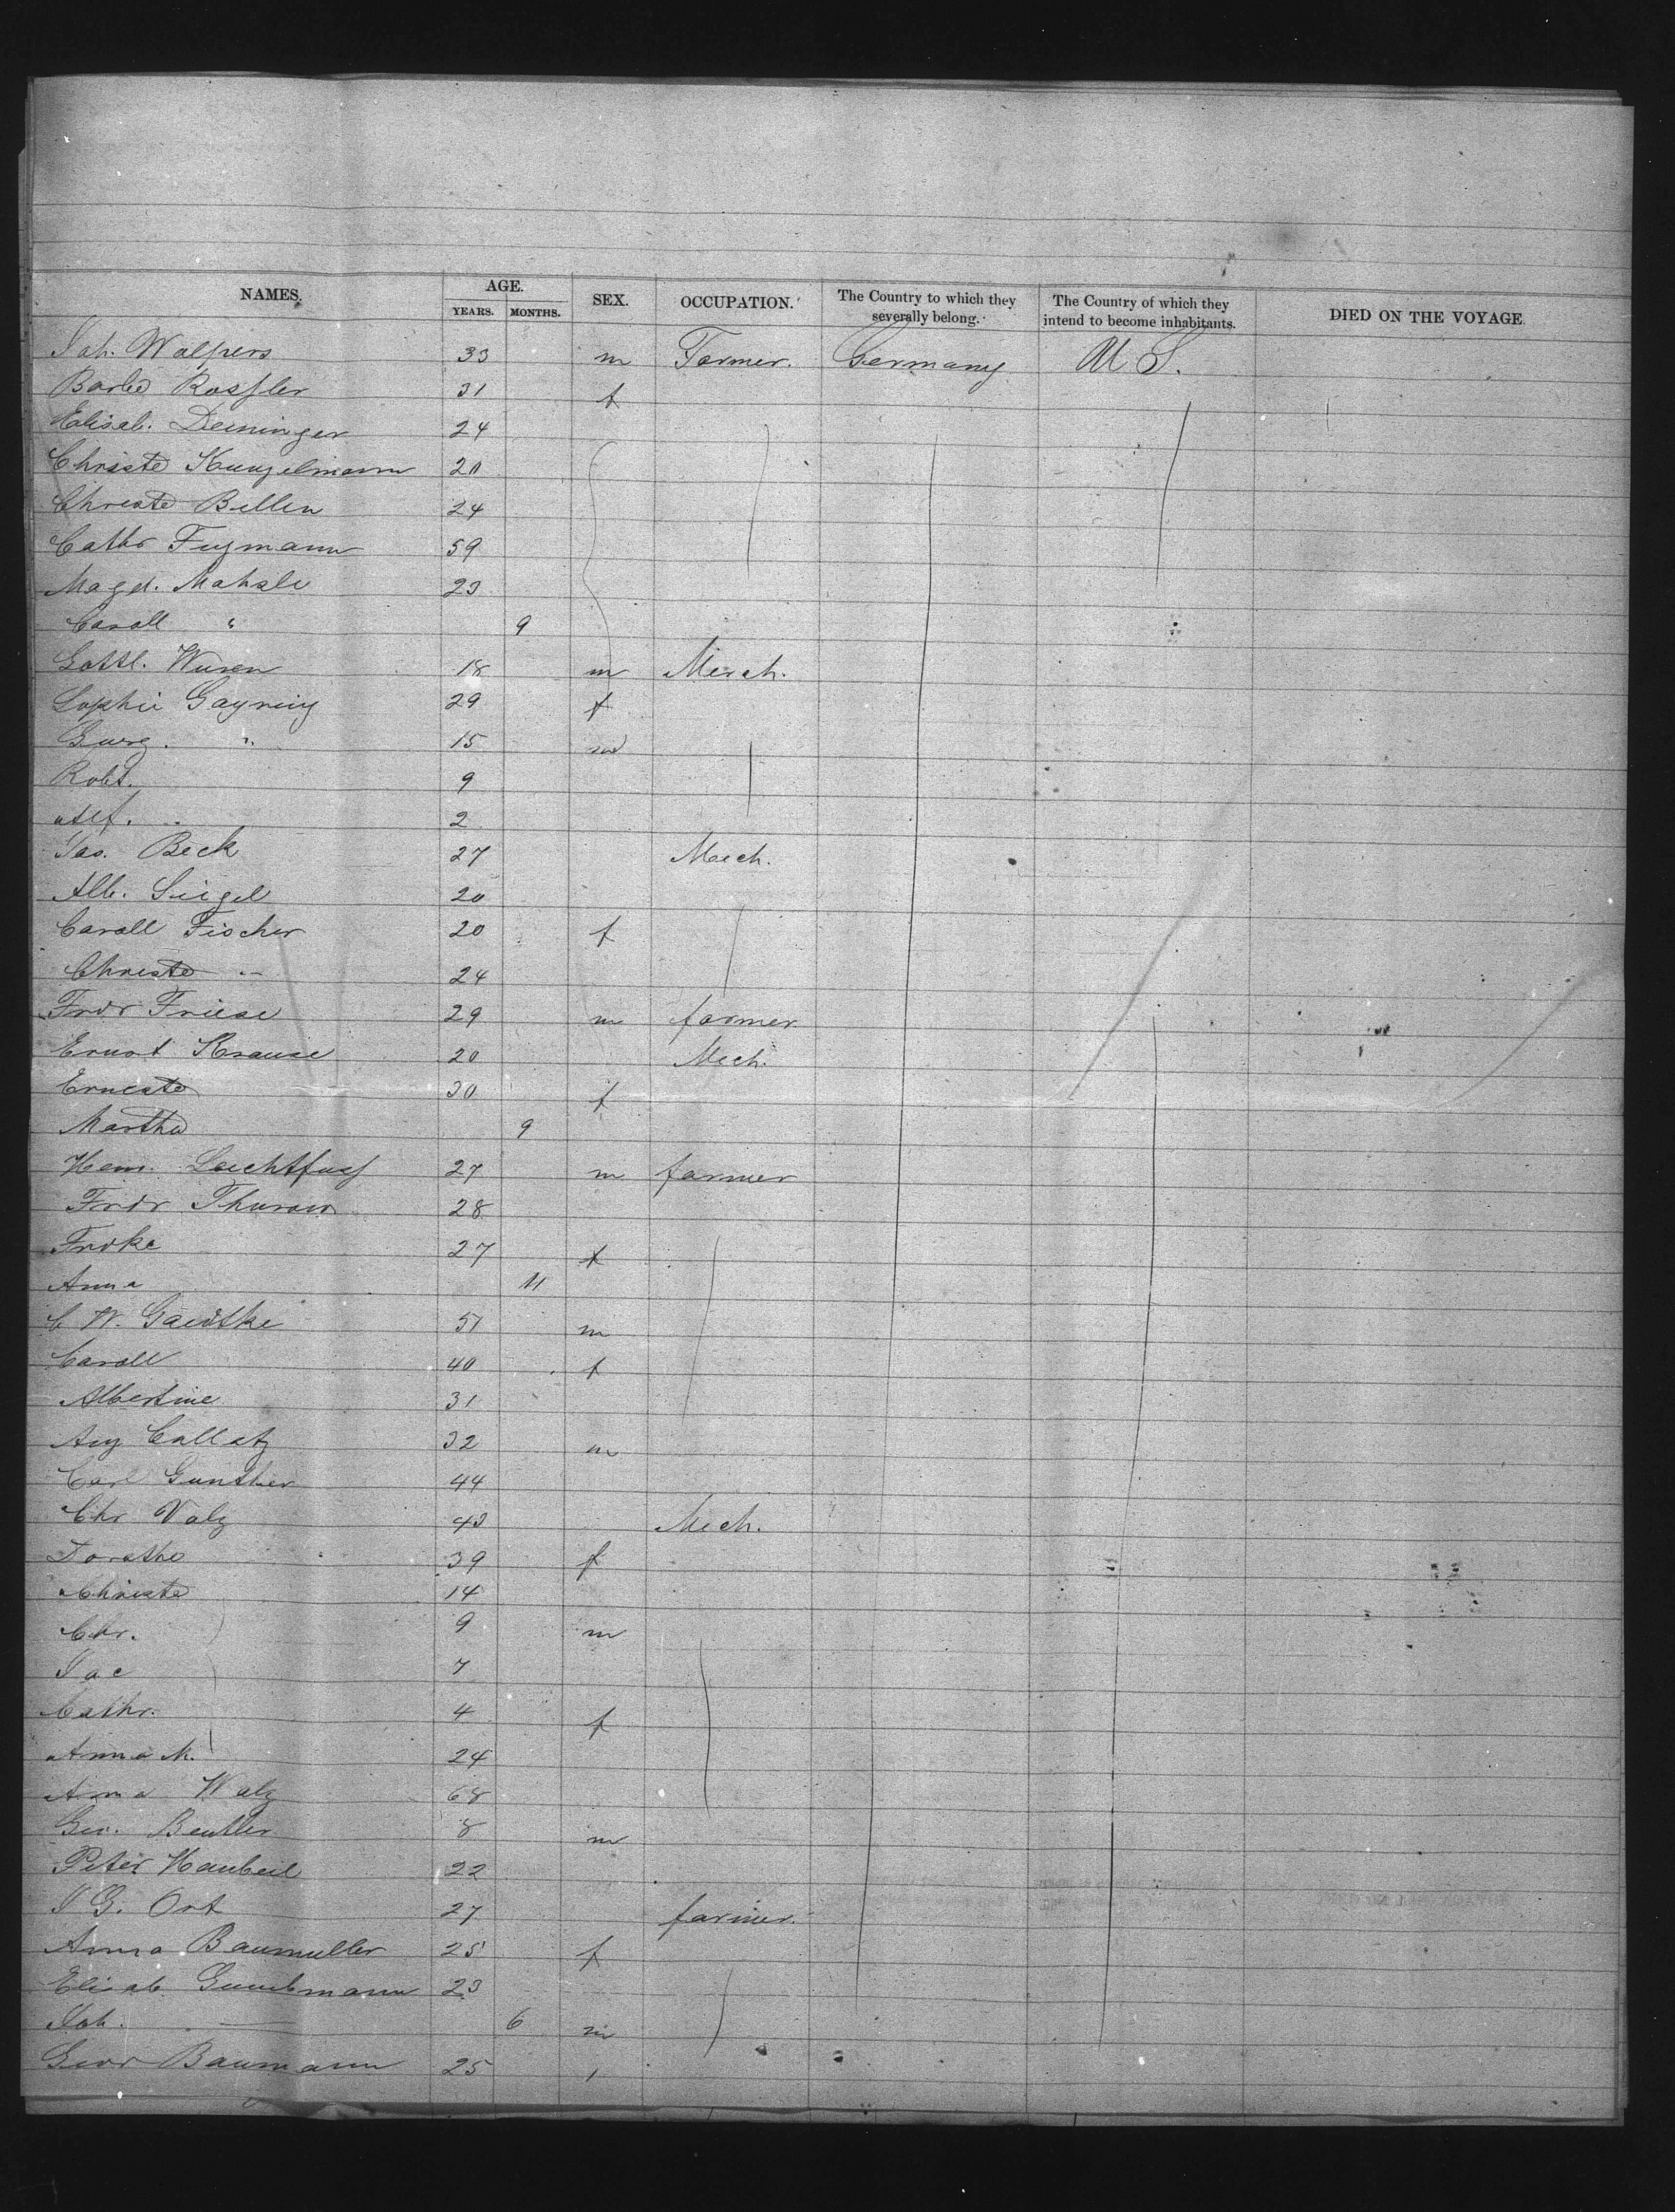 NAMES. AGE. SEX. OCCUPATION. The Country to which they severally belong. The Country of which they intend to become inhabitants. DIED ON THE VOYAGE.
YEARS. MONTHS.
Joh. Walpers 33 m Farmer. Germany U S.
Barbe Rossler 31 f
Elisab. Deininger 24
Christe Kunzelmann 20
Christe Bellen 24
Cathr 59
Magd. Mahsle 23
Caroll " 9
Gottl. Wuren 18 m Mech.
Sophie 29 f
Georg. " 15 m
Robt. 9
Alf. " 2
Jac. Beck 27 Mech.
Alb. Siegel 20
Caroll Fischer 20 f
Christe " 24
Frdr Friese 29 m farmer
Ernst Krause 20 Mech.
Erneste 30 f
Martha 9
Herm. Leichtfuss 27 m farmer
Frdr Thurow 28
Frdke 27 f
Anna 11
C W. Gaedtke 51 m
Caroll 40 f
Albertine 31
Aug Collatz 32 m
Carl Gunther 44
Chr Valz 43 Mech.
Dorathe 39 f
Christe 14
Chr. 9 m
Jac 7
Cathr. 4 f
Anna M. 24
Anna Walz 68
Geo. Beutler 8 m
Peter Haubeil 22
J G. Ort 27 farmer.
Anna Baumuller 25 f
Elisab Gumbmann 23
Joh. — 6 m
Geor Baumann 25 "